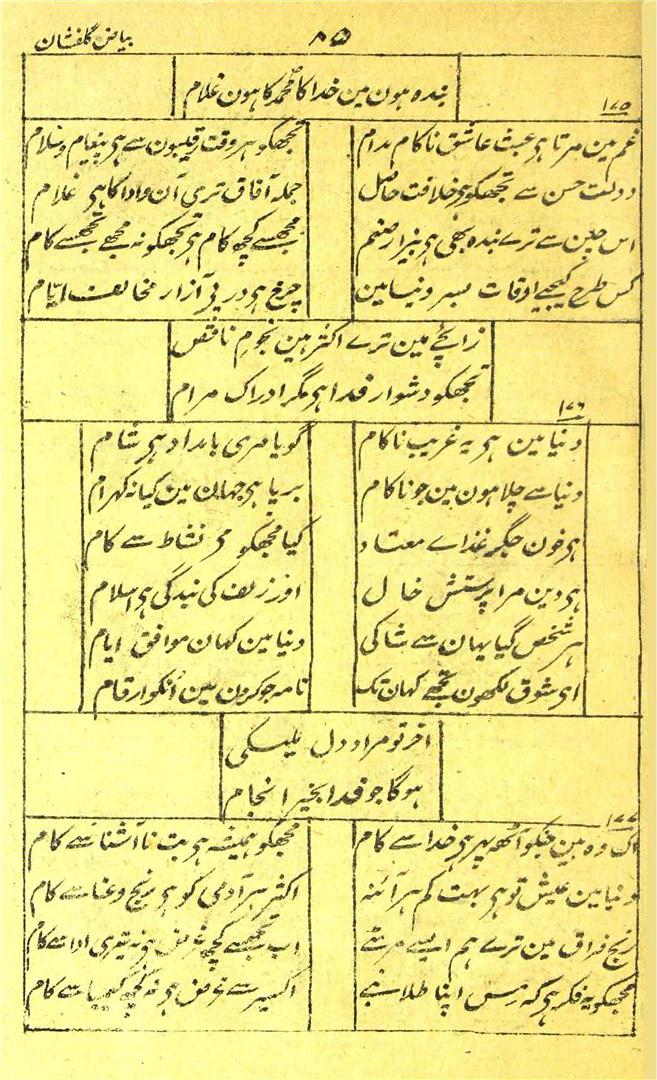 ۸۵
بیاض گلفشان
بندہ ہون مین خدا کا محمدؐ کا ہون غلام
۱۷۵
غم مین مرتا ہی عبث عاشق ناکام مدام
تجھکو ہر وقت رقیبون سے ہی پیغام و سلام
دولت حسن سے تجھکو ہی خلافت حاصل
جملہ آفاق تری آن و ادا کا ہی غلام
اس چلن سے ترے بندہ بھی ہی بیزار صنم
مجھسے کچھ کام ہی تجھکو نہ مجھے تجھسے کام
کس طرح کیجیے اوقات بسر دنیا مین
چرخ ہی در پی آزار مخالف ایام
زائچے مین ترے اکثر ہین نجوم ناقص
تجھکو دشوار فدا ہی مگر ادراک مرام
۱۷۶
دنیا مین ہی یہ غریب ناکام
گویا مری بامداد ہی شام
دنیا سے چلا ہون مین جو ناکام
برپا ہی جہان مین کیا نہ کہرام
ہی خون جگر غذاے معتاد
کیا مجھکو می نشاط سے کام
ہی دین مرا پرستش خال
اور زلف کی بندگی ہی اسلام
ہر شخص گیا یہان سے شاکی
دنیا مین کہان موافق ایام
ای شوق لکھون تجھے کہان تک
نامہ جو کرون مین انکو ارقام
آخر تو مراد دل ملیگی
ہوگا جو فدا بخیر انجام
۱۷۷
اک وہ ہین جنکو آٹھ پہر ہی خدا سے کام
مجھکو ہمیشہ ہی بت ناآشنا سے کام
دنیا مین عیش تو ہی بہت کم ہر آئنہ
اکثر ہر آدمی کو ہی رنج و عنا سے کام
رنج فراق مین ترے ہم ایسے مر مٹے
اب تجھسے کچھ غرض ہی نہ تیری ادا سے کام
مجھکو یہ فکر ہی کہ مس اپنا طلا بنے
اکسیر سے غرض ہی نہ کچھ کیمیا سے کام